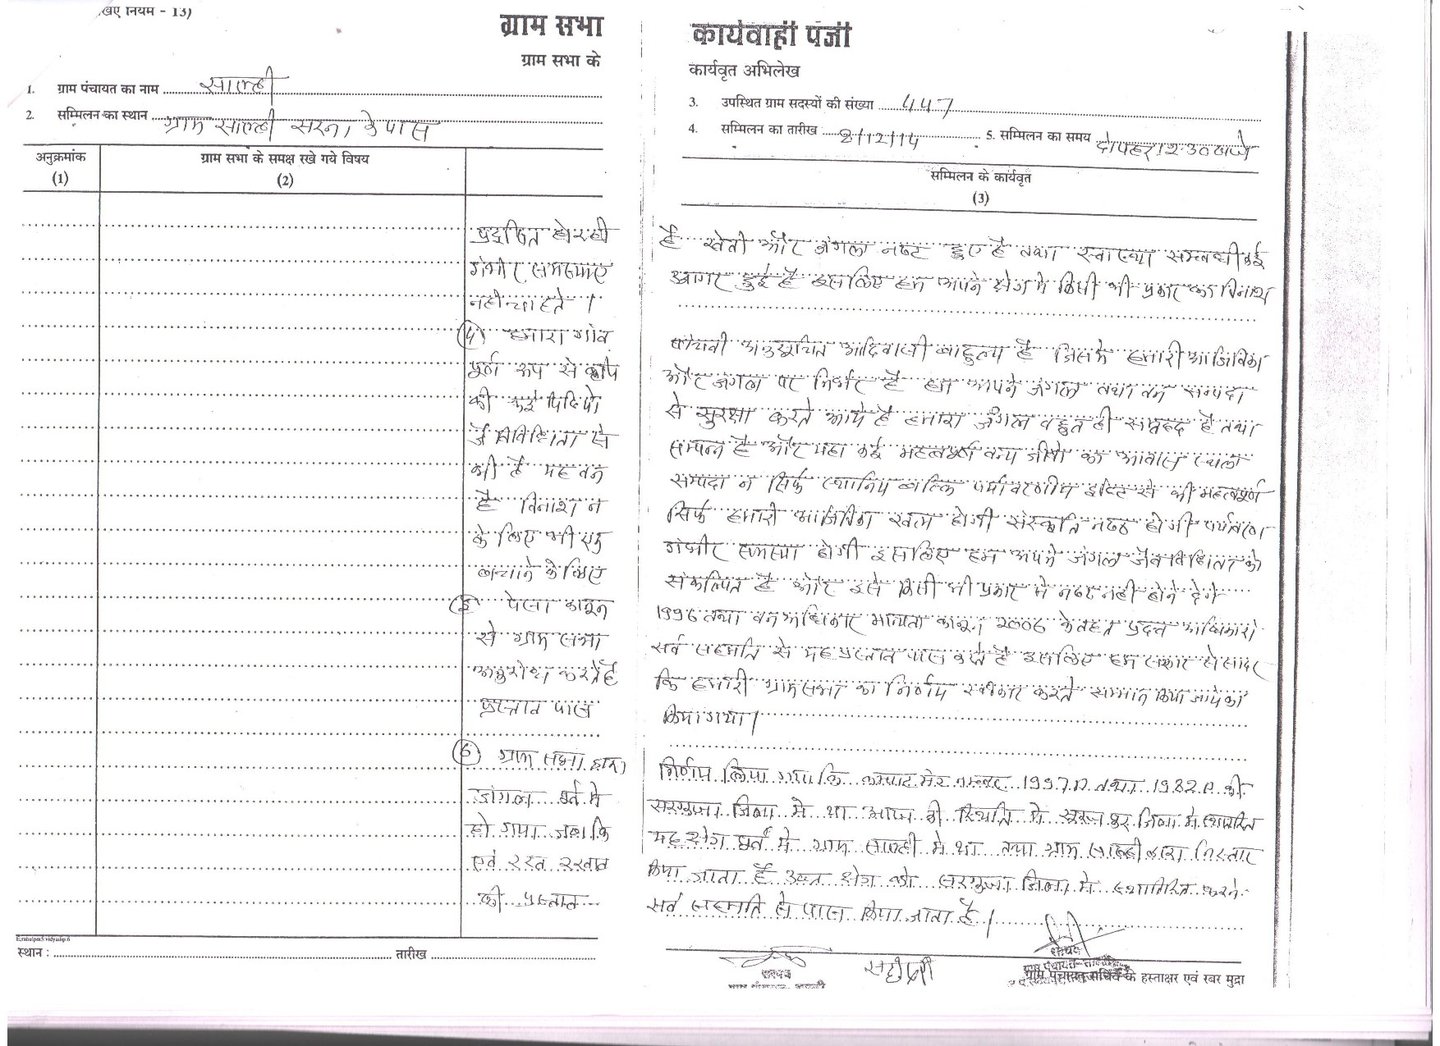 खिए नियम - 13)
ग्राम सभा कार्यवाही पंजी
ग्राम सभा के कार्यवृत अभिलेख
1. ग्राम पंचायत का नाम साल्ही
3. उपस्थित ग्राम सदस्यों की संख्या 447
2. सम्मिलन का स्थान ग्राम साल्ही सरना के पास
4. सम्मिलन का तारीख 8/12/14 5. सम्मिलन का समय दोपहर 12:30 बजे
अनुक्रमांक ग्राम सभा के समक्ष रखे गये विषय सम्मिलन के कार्यवृत
(1) (2) (3)
प्रदूषित हो रही है खेती और जंगल नष्ट हुए है तथा स्वास्थ्या सम्बन्धी कई
गंभीर समस्याए हुई है इसलिए हम अपने क्षेत्र मे किसी भी प्रकार का विनाश
नही चाहते ।
हमारा गांव पांचवी अनुसूचित आदिवासी बाहुल्य है जिसमे हमारी आजिविका
पूर्ण रूप से और जंगल पर निर्भर है हम अपने जंगल तथा वन सम्पदा
की कई पिढियो से सुरक्षा करते आये है हमारा जंगल बहुत ही समृद्ध है तथा
से सम्पन्न है और यहा कई महत्वपूर्ण वन्य जीवो का आवास स्थल
भी है यह वन सम्पदा न सिर्फ स्थानिय बल्कि पर्यावरणीय दृष्टि से भी महत्वपूर्ण
है विनाश न सिर्फ हमारी आजिविका खत्म होगी संस्कृति नष्ट होगी पर्यावरण
के लिए भी गंभीर समस्या होगी इसलिए हम अपने जंगल जैवविविधता को
बचाने के लिए संकल्पित है और इसे किसी भी प्रकार से नष्ट नही होने देगे
पेसा कानून 1996 तथा वन अधिकार मान्यता कानून 2006 के तहत प्रदत्त अधिकारो
से ग्राम सभा सर्व सहमति से यह प्रस्ताव पास करते है इसलिए हम सरकार से सादर
अनुरोध करते है कि हमारी ग्रामसभा का निर्णय स्वीकार करते सम्मान किया जाये
प्रस्ताव पास किया गया।
(6) ग्राम सभा द्वारा निर्णय लिया गया कि नम्बर 1997 तथा 1982 की
जंगल पूर्व मे सरगुजा जिला मे था आज की स्थिति मे सूरजपुर जिला मे स्थापित
हो गया जबकि यह क्षेत्र पूर्व मे ग्राम साल्ही मे था तथा ग्राम साल्ही द्वारा निस्तार
एवं रख रखाव किया जाता है उक्त क्षेत्र को सरगुजा जिला मे स्थापित करने
की प्रस्ताव सर्व सहमति से पास किया जाता है।
स्थान : तारीख
सरपंच
सचिव
ग्राम पंचायत सचिव के हस्ताक्षर एवं रबर मुद्रा